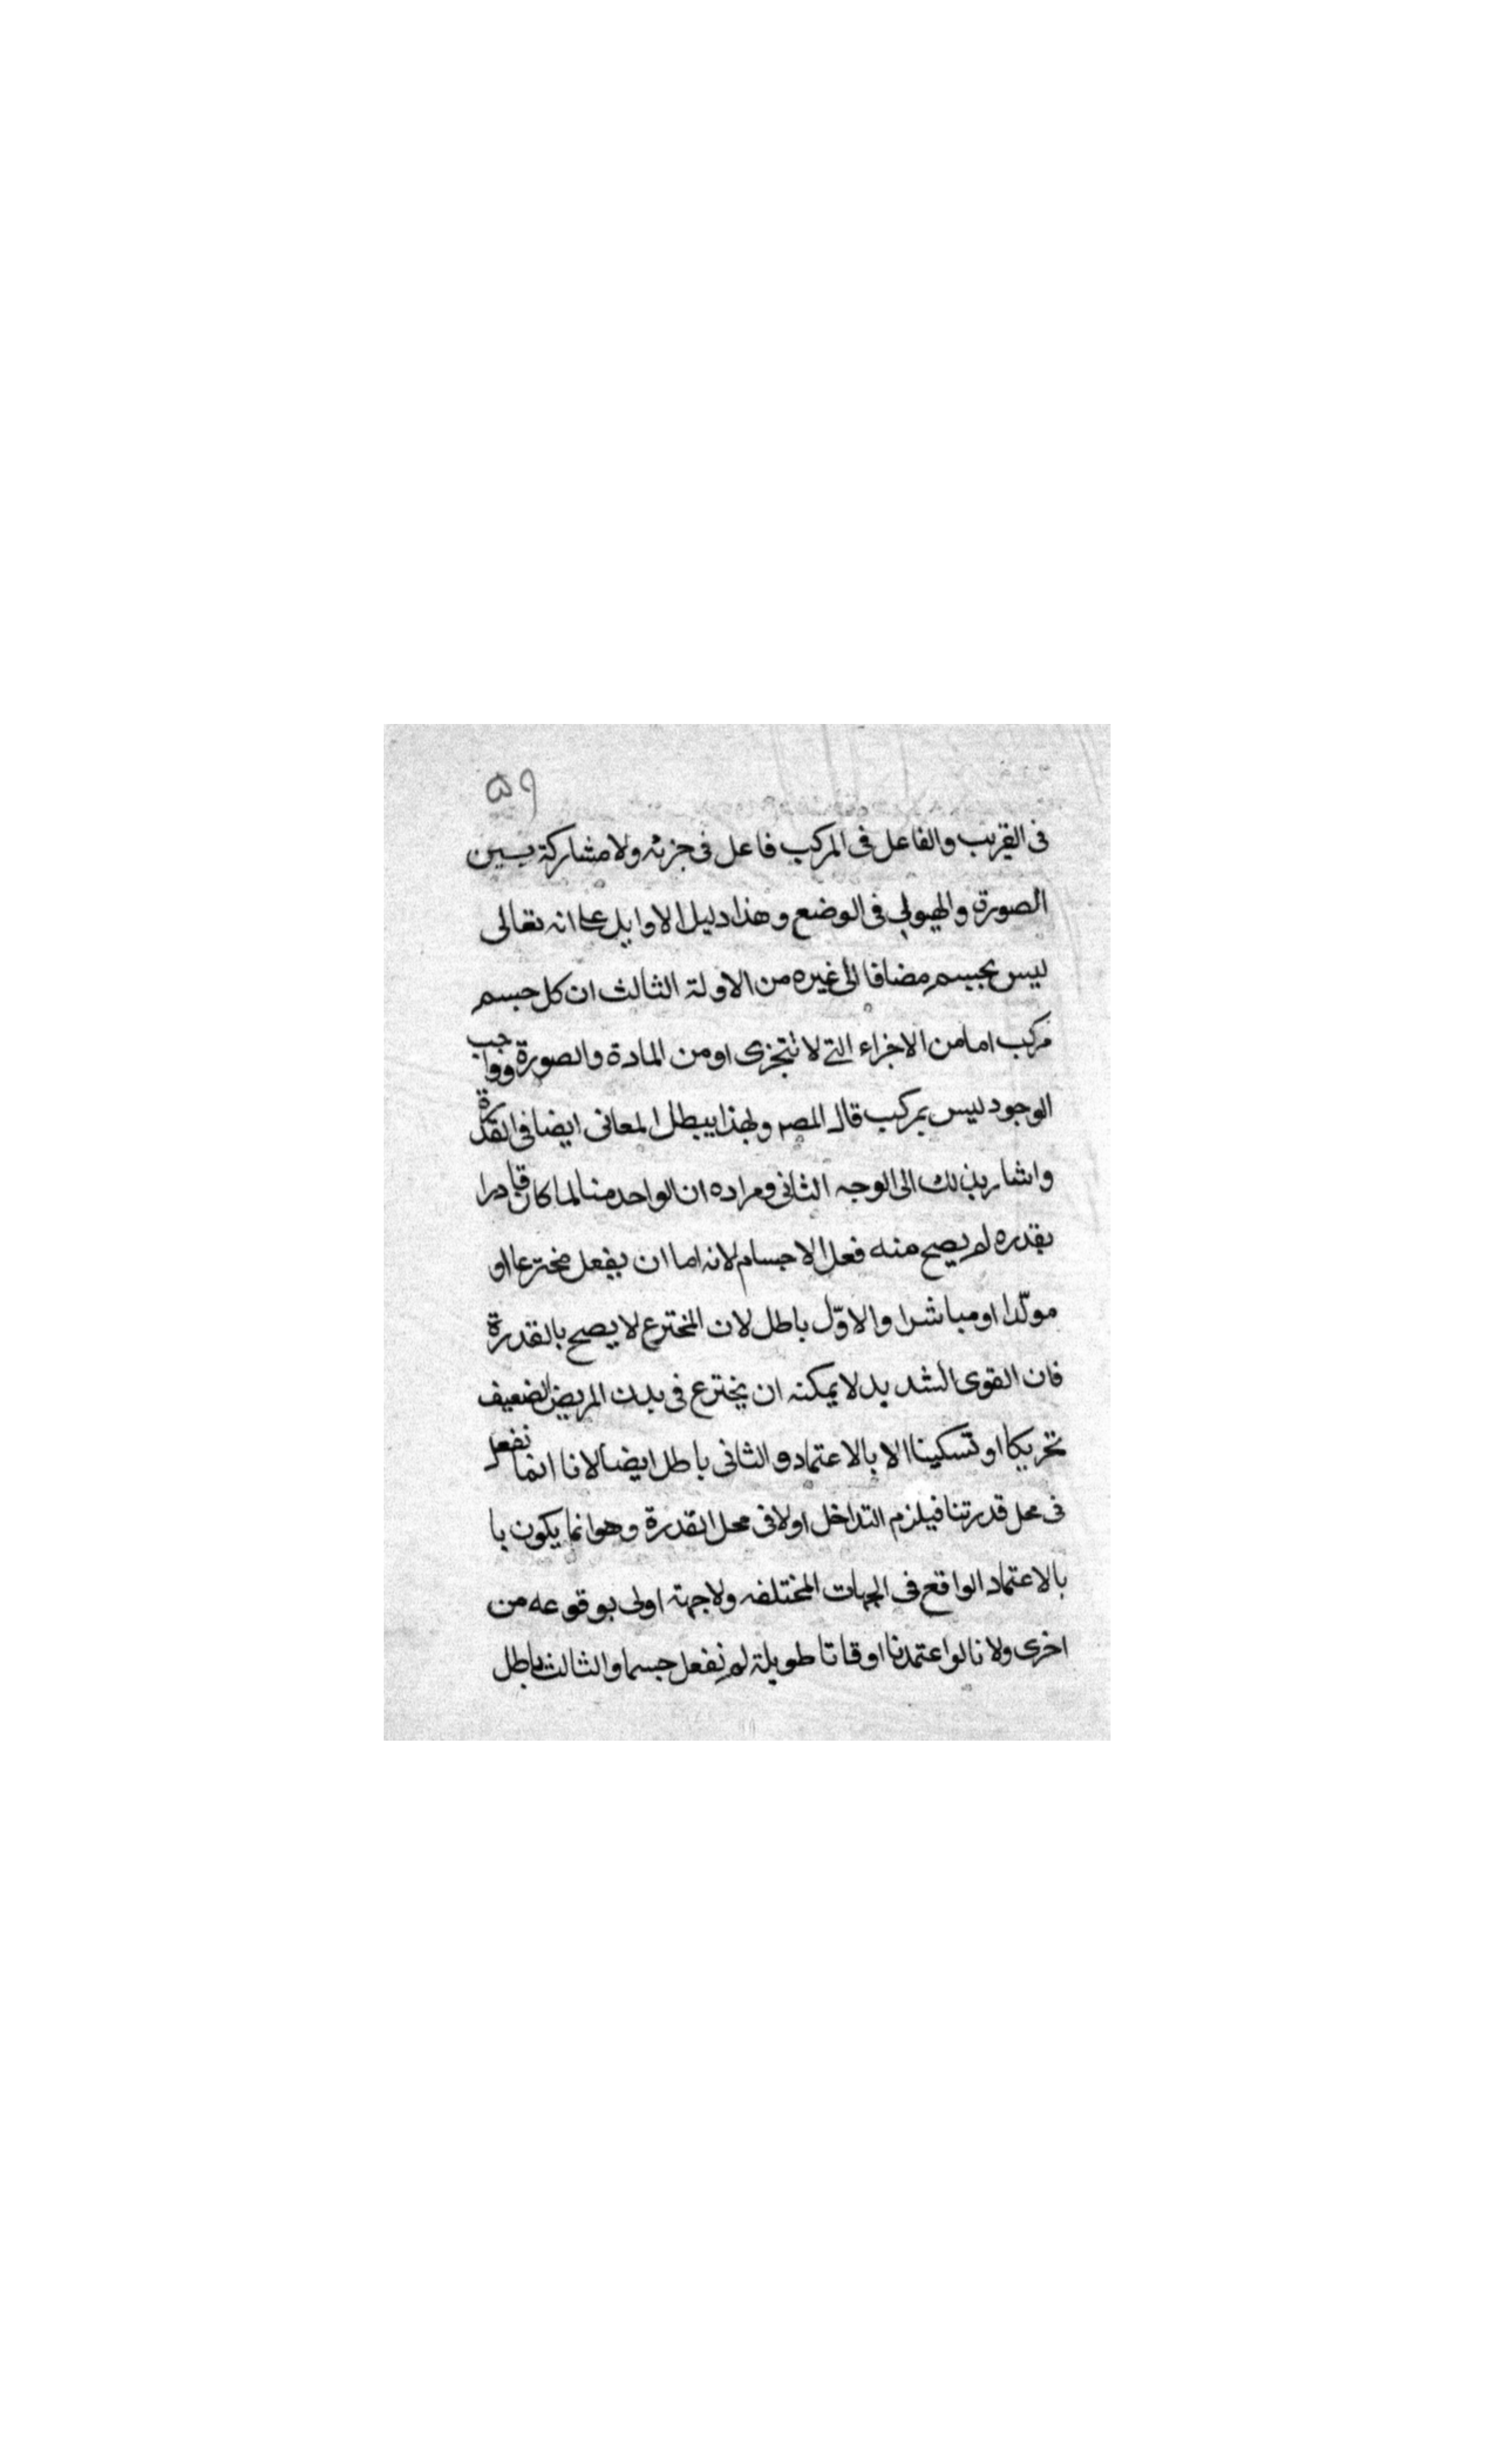 ٥٩
فى القريب والفاعل فى المركب فاعل فى جزئه ولا مشاركة بين
الصورة والهيولى فى الوضع وهذا دليل الاوايل على انه تعالى
ليس بجسم مضافا الى غيره من الاولة الثالث ان كل جسم
مركب اما من الاجزاء التى لا تتجزى او من المادة والصورة وواجب
الوجود ليس بمركب قال المصـ ولهذا يبطل المعانى ايضا فى القدرة
واشار بذلك الى الوجه الثانى ومراده ان الواحد منا لما كان قادرا
بقدره لم يصح منه فعل الاجسام لانه اما ان يفعل مخترعا او
مولّدا او مباشرا والاوّل باطل لان المخترع لا يصح بالقدرة
فان القوى الشديد لا يمكنه ان يخترع فى بدن المريض الضعيف
تحريكا او تسكينا الا بالاعتماد والثانى باطل ايضا لانا انما نفعل
فى محل قدرتنا فيلزم التداخل او لا فى محل القدرة وهو انما يكون با
بالاعتماد الواقع فى الجهات المختلفه ولا جهة اولى بوقوعه من
اخرى ولانا لو اعتمدنا اوقاتا طويلة لم نفعل جسما والثالث باطل